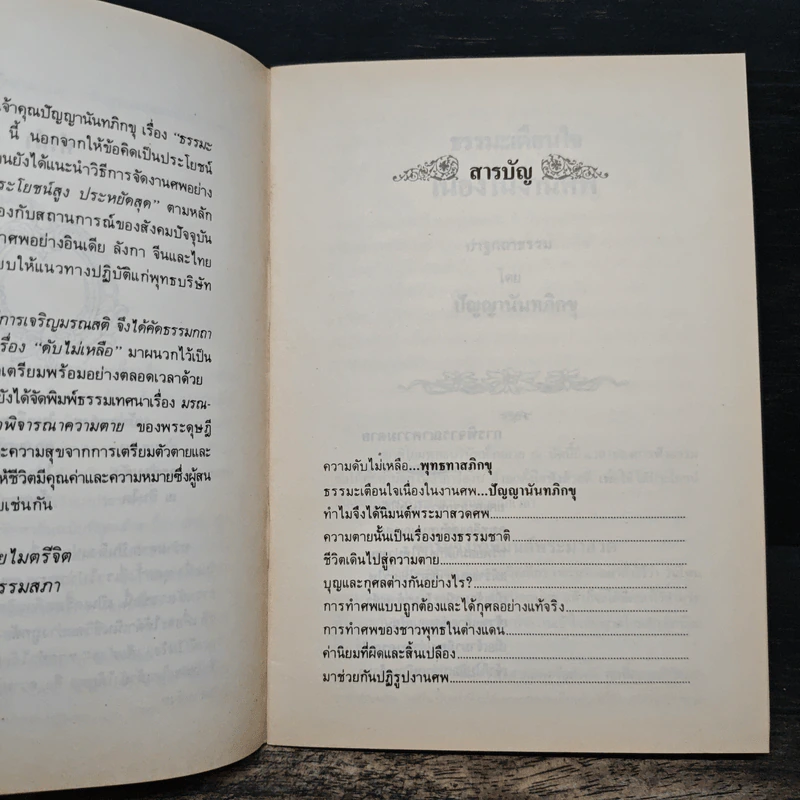 เจ้าคุณปัญญานันทภิกขุ เรื่อง "ธรรมะ
นี้ นอกจากให้ข้อคิดเป็นประโยชน์
นยังได้แนะนำวิธีการจัดงานศพอย่าง
ระโยชน์สูง ประหยัดสุด" ตามหลัก
องกับสถานการณ์ของสังคมปัจจุบัน
าศพอย่างอินเดีย ลังกา จีนและไทย
บให้แนวทางปฏิบัติแก่พุทธบริษัท
การเจริญมรณสติ จึงได้คัดธรรมกถา
รื่อง "ดับไม่เหลือ" มาผนวกไว้เป็น
เตรียมพร้อมอย่างตลอดเวลาด้วย
ยังได้จัดพิมพ์ธรรมเทศนาเรื่อง มรณ-
พิจารณาความตาย ของพระดุษฎี
ะความสุขจากการเตรียมตัวตายและ
ห้ชีวิตมีคุณค่าและความหมายซึ่งผู้สน
ยเช่นกัน
ยไมตรีจิต
รรมสภา
สารบัญ
ความดับไม่เหลือ...พุทธทาสภิกขุ
ธรรมะเตือนใจเนื่องในงานศพ...ปัญญานันทภิกขุ
ทำไมจึงได้นิมนต์พระมาสวดศพ
ความตายนั้นเป็นเรื่องของธรรมชาติ
ชีวิตเดินไปสู่ความตาย
บุญและกุศลต่างกันอย่างไร?
การทำศพแบบถูกต้องและได้กุศลอย่างแท้จริง
การทำศพของชาวพุทธในต่างแดน
ค่านิยมที่ผิดและสิ้นเปลือง
มาช่วยกันปฏิรูปงานศพ